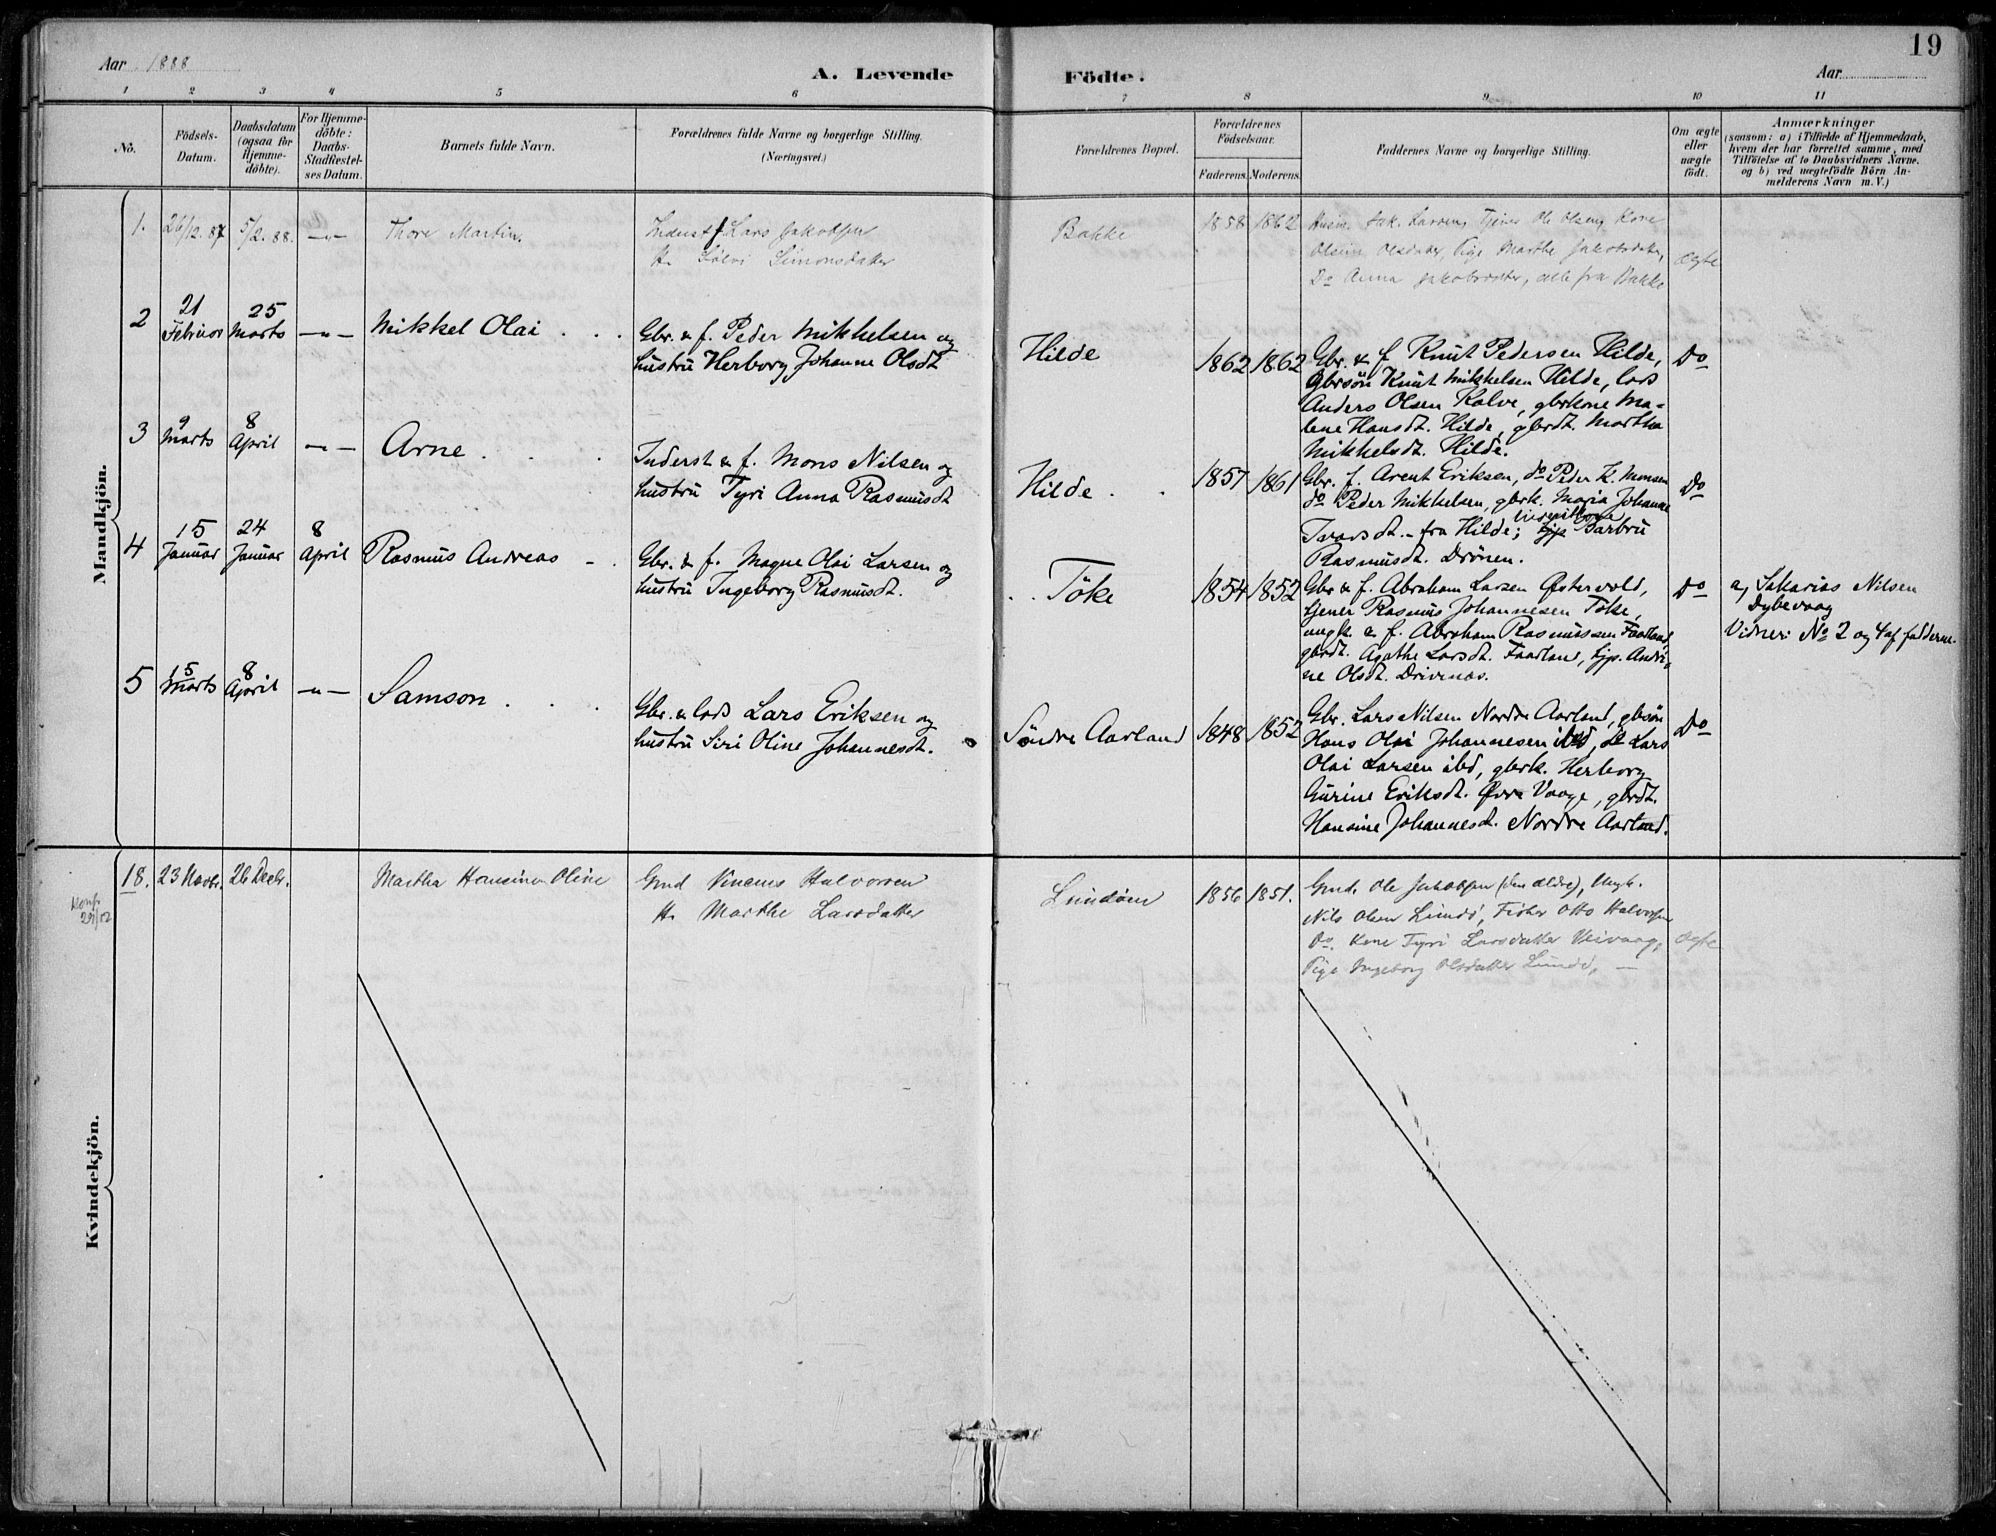 19
Aar 1888
A. Levende Födte.
Aar
1 2 3 4 5 6 7 8 9 10 11
No.
Födsels-Datum.
Daabsdatum (ogsaa for Hjemme-döbte).
For Hjemme-döbte: Daabs-Stadfæstel-ses Datum.
Barnets fulde Navn.
Forældrenes fulde Navne og borgerlige Stilling. (Næringsvei.)
Forældrenes Bopæl.
Forældrenes Födselsaar.
Faderens. Moderens.
Faddernes Navne og borgerlige Stilling.
Om ægte eller uægte födt.
Anmærkninger
(saasom: a) i Tilfælde af Hjemmedaab,
hvem der har forrettet samme, med
Tilföielse af to Daabsvidners Navne.
og b) ved uægtefödte Börn An-
melderens Navn m. V.)
Mandkjön.
1. 26/12. 87 5/2. 88. -"- Thore Martin.
Inderst f Lars Jakobsen
H. Sølvi Simonsdatter
Bakke 1858 1862
Husm. Jak. Larsen, Tjener Ole Olsen, Kone
Olsine Olsdatter, Pige Marthe Jakobsdatter,
Do Anna Jakobsdatter, alle fra Bakke
ægte
2 21 Februar 25 Marts -"- Mikkel Olai
Gbr. & f. Peder Mikkelsen og
hustru Herborg Johanne Olsdt
Hilde 1862 1862
Gbr. & f Knut Pedersen Hilde,
Gbrsön Knut Mikkelsen Hilde, lods
Anders Olsen Kalve, gbrkone Ma-
lene Hansdt. Hilde, gbrdt. Martha
Mikkelsdt. Hilde.
Do
3 9 Marts 8 April -"- Arne
Inderst & f. Mons Nilsen og
hustru Tyri Anna Rasmusdt
Hilde 1857 1861
Gbr. f. Arent Eriksen, do Peder K. Monsen
do Peder Mikkelsen, gbrk. Maria Johanne
Ivarsdt. fra Hilde; Barbru
Rasmusdt. Drönen.
Do
4 15 Januar 24 Januar 8 April Rasmus Andreas
Gbr. & f. Magne Olai Larsen og
hustru Ingeborg Rasmusdt.
Töke 1854 1852
Gbr & f. Abraham Larsen Østervold,
tjener Rasmus Johannesen Töke,
ungk. & f. Abraham Rasmussen Faarland,
gbrdt. Agathe Larsdt. Faarland, tjp. Andri-
ne Olsdt. Drivenæs.
Do
a, Sakarias Nilsen
Dybevaag
Vidner: No 2 og 4 af fadderne.
5 15 Marts 8 April -"- Samson
Gbr. & lods Lars Eriksen og
hustru Siri Oline Johannesdt.
Söndre Aarland 1848 1852
Gbr. Lars Nilsen Nordre Aarland, gbrsön
Hans Olai Johannesen ibd, do Lars
Olai Larsen ibd, gbrk. Herborg
Gurine Eriksdt. Øvre Vaage, gbrdt.
Hansine Johannesdt. Nordre Aarland.
Do
Kvindekjön.
Konf. 29/ 02
18. 23 Novbr. 26 Decbr. Martha Hansine Oline
Gmd Vincens Halvorsen
H. Marthe Larsdatter
Lundöen 1856 1851.
Gmd. Ole Jakobsen (den ældre), Ungk.
Nils Olsen Lundö, Fisker Otto Halvorsen
Do. Kone Tyri Larsdatter Veivaag,
Pige Ingeborg Olsdatter Lundö,
ægte